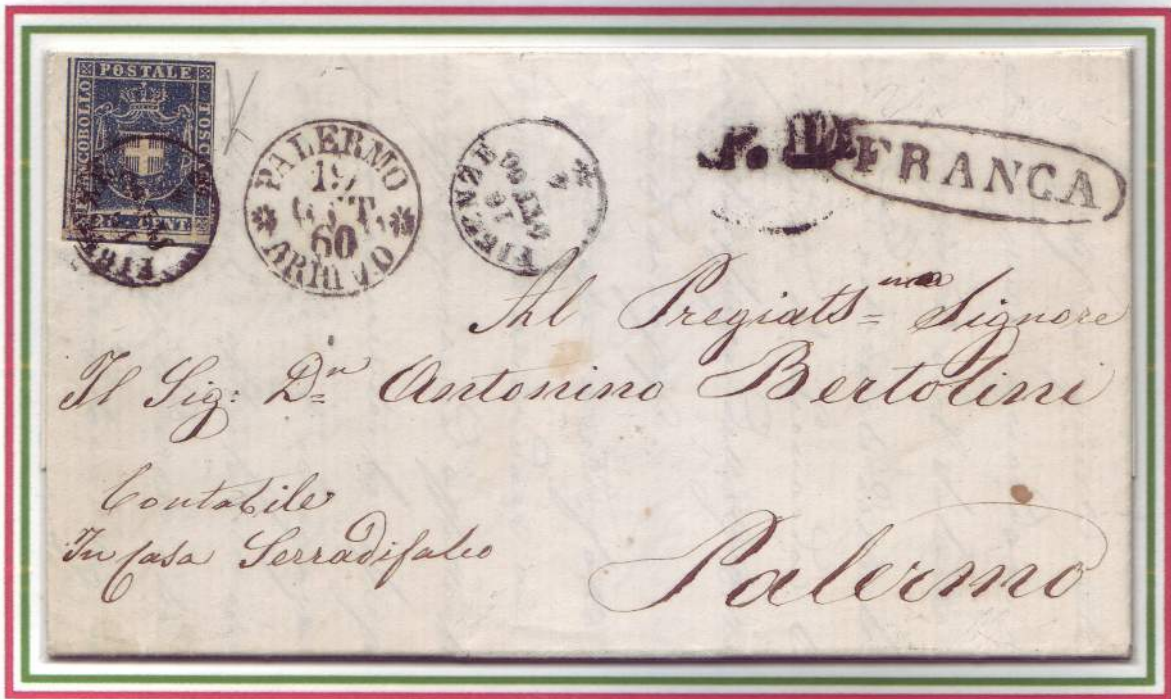 FRANCOBOLLO POSTALE TOSCANO
25 CENT
FIRENZE
PALERMO
19
OTT.
60
ARRIVO
FIRENZE
60
P. D.
FRANCA
Al Pregiats.=ma Signore
Il Sig: D.=n Antonino Bertolini
Contabile
In Casa Serradifalco
Palermo